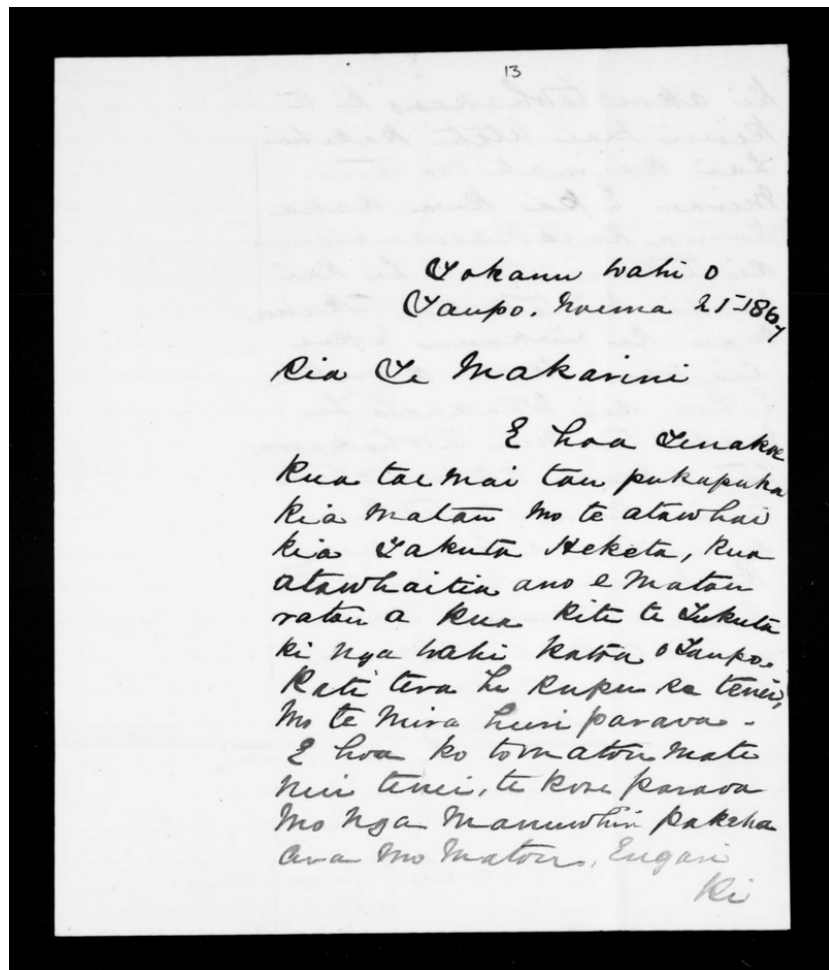 13
Tokanu wahi o
Taupo. Noema 21-1867
Kia Te Makarini
E hoa Tenakoe
Kua tae mai tau pukapuka
kia matau mo te atawhai
kia Takuta Heketa, Kua
atawhaitia ano e matau
ratou a kua kite te Takuta
ki nga wahi katoa o Taupo.
Kati tera he kupu ke tenei,
mo te mira huri parava.
E hoa ko to matou mate
nui tenei, te kore parava
mo nga manuwhiri pakeha
ava mo matou, Engari
Ki